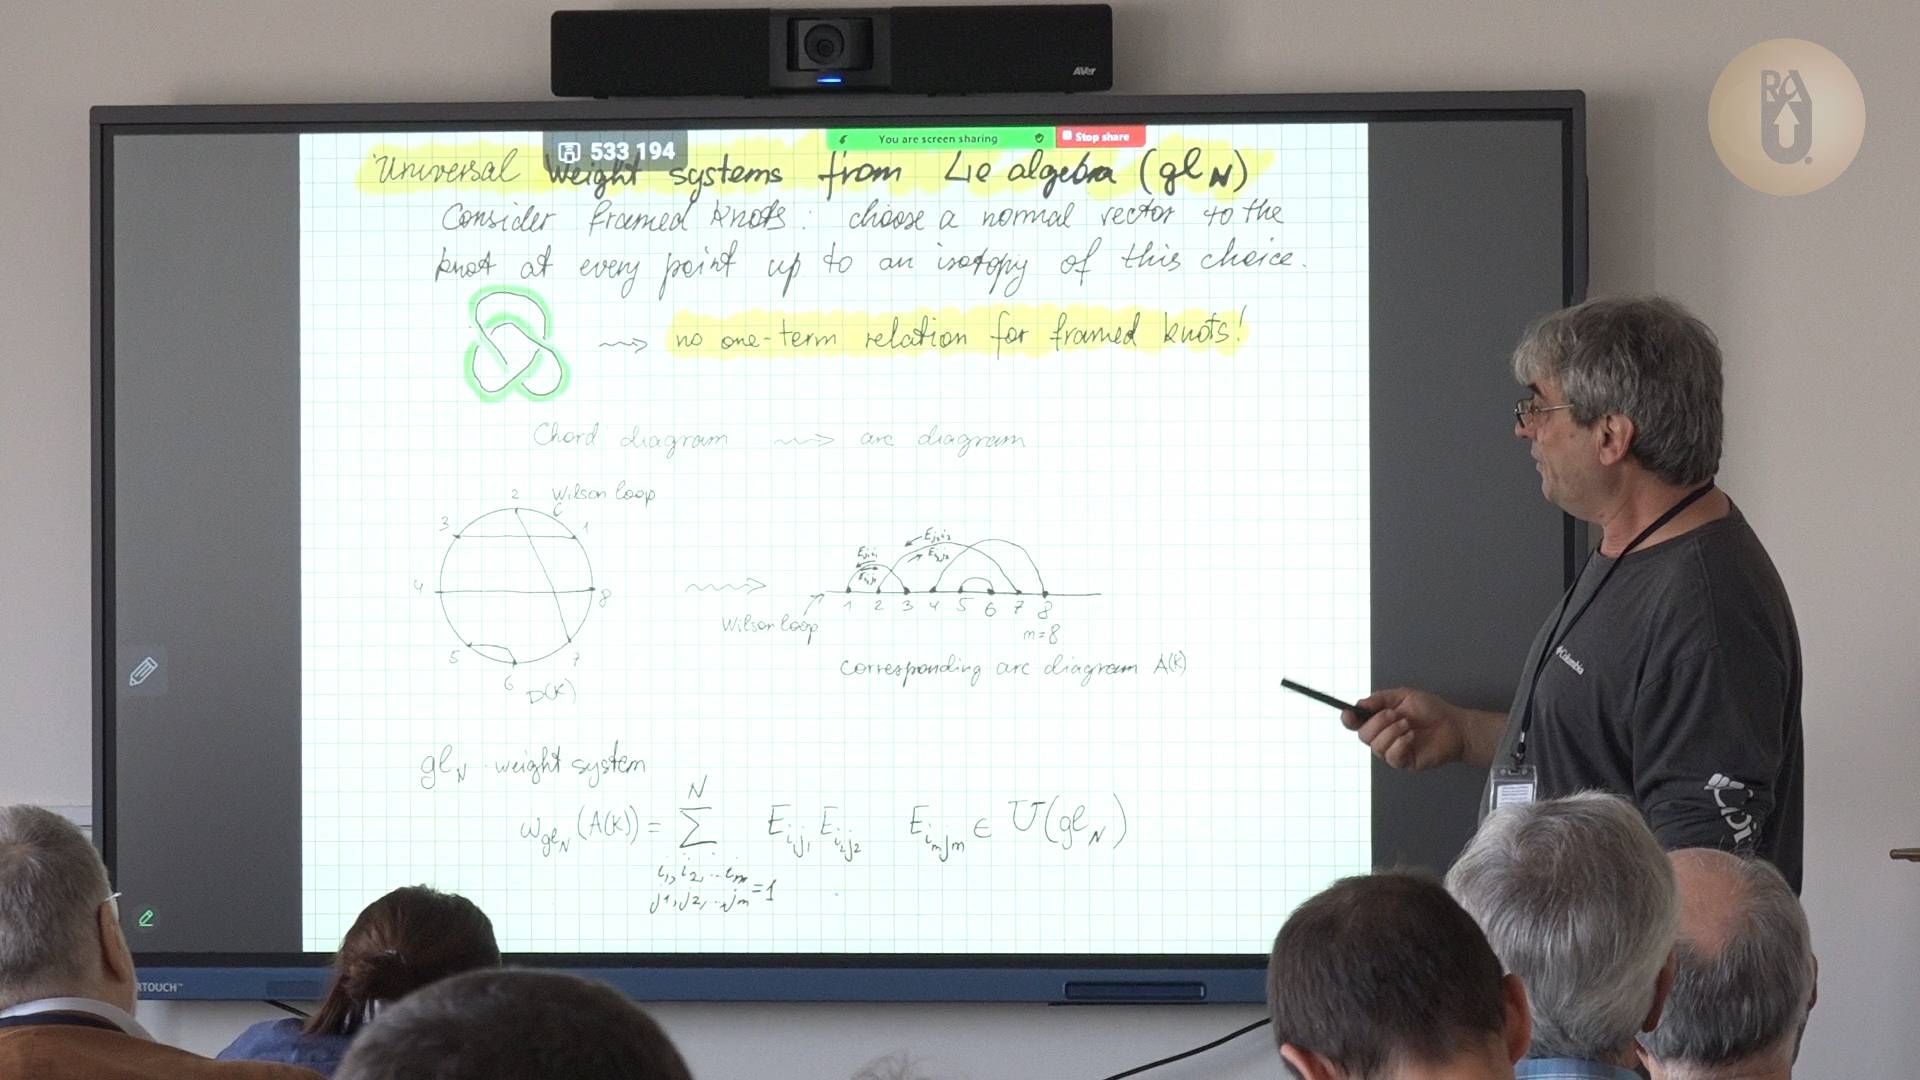 AVer
RAU
533 194
You are screen sharing
Stop share
Universal Weight systems from Lie algebra (glN)
Consider framed knots: choose a normal vector to the
knot at every point up to an isotopy of this choice.
no one-term relation for framed knots!
Chord diagram arc diagram
2 Wilson loop
3 1
4 8
5 7
6 D(K)
Ej1i1 Ei1j1 Ej2i2 Ei2j2
1 2 3 4 5 6 7 8
Wilson loop
m=8
corresponding arc diagram A(K)
glN - weight system
ωglN(A(K)) = N∑ Ei1j1 Ei2j2 Eimjm ∈ U(glN)
i1,i2,...im
j1,j2,...jm=1
Columbia
RTOUCH™